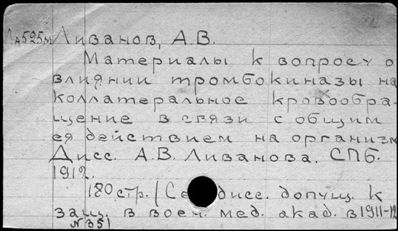 Ла525м Ливанов, А.В.
Материалы к вопросу о
влиянии тромбокиназы на
коллатеральное кровообра-
щение в связи с общим
ея действием на организм
Дисс. А.В. Ливанова. СПб.
1912.
180 стр. дисс. допущ. к
защ. в воен. мед. акад. в 1911-12
№35)